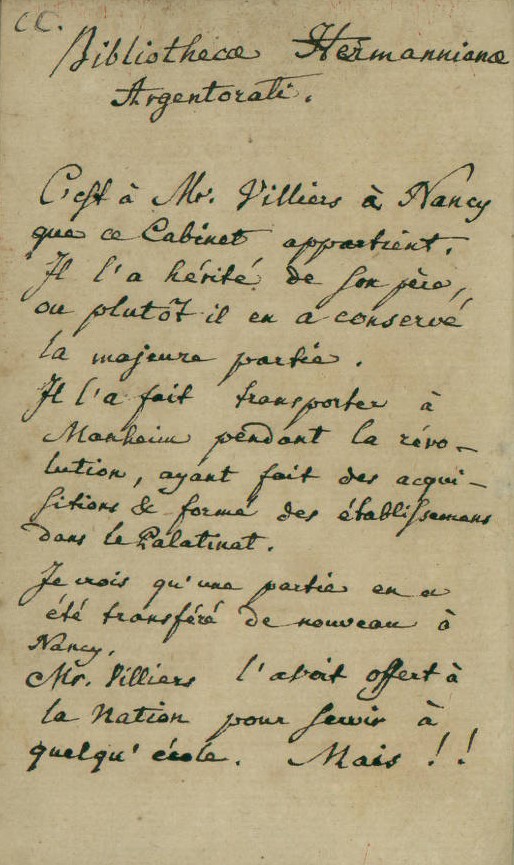 CC.
Bibliothecæ Hermannianæ
Argentorati.
C'est à Mr. Villiers à Nancy
que ce Cabinet appartient.
Il l'a hérité de son père,
ou plutôt il en a conservé
la majeure partie.
Il l'a fait transporter à
Manheim pendant la révo-
lution, ayant fait des acqui-
sitions & formé des établissemens
dans le Palatinat.
Je crois qu'une partie en a
été transféré de nouveau à
Nancy.
Mr. Villiers l'avoit offert à
la Nation pour servir à
quelqu' école. Mais !!